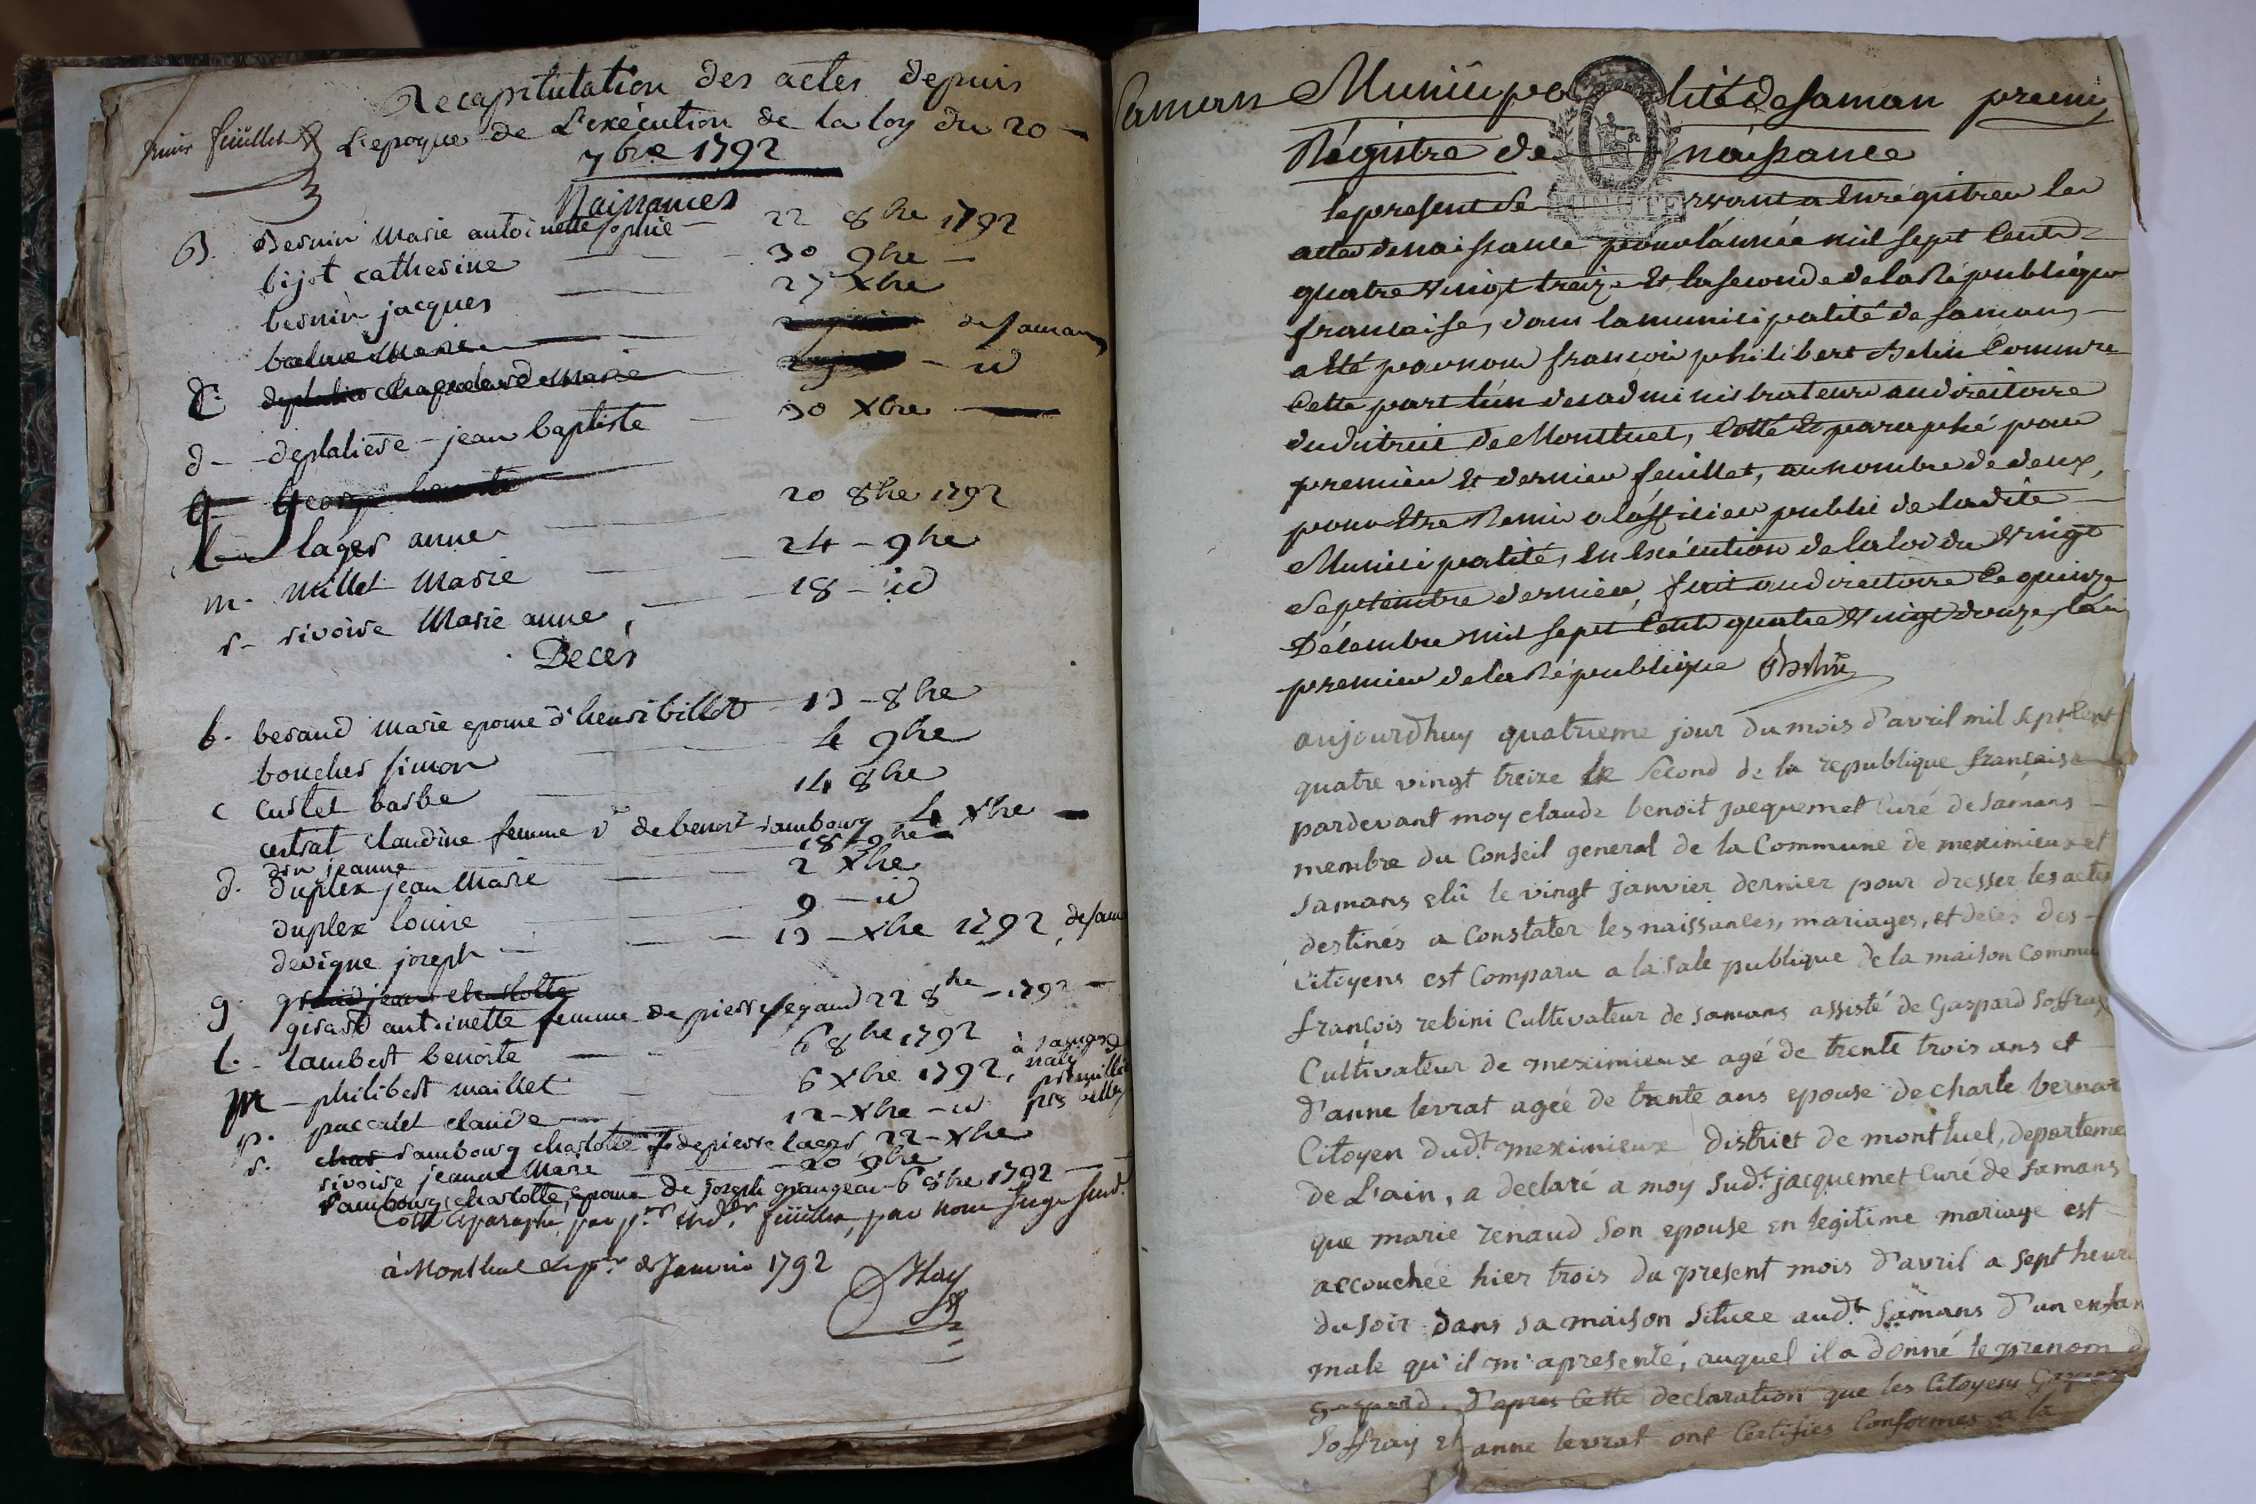 Recapitulation des actes depuis
feüillet
L'epoque de L'exécution de la loy du 20
7bre 1792
Naissances
B. Bernin Marie antoinette sophie 22 8bre 1792
bijot catherine 30 9bre
bernin jacques 27 Xbre
balme Marie de samans
C. Marie id
d. deplatiere jean baptiste 30 Xbre
g. george
l. lager anne 20 8bre 1792
m. Millet Marie 24 9bre
r. rivoire Marie anne 18 id
Decès
b. beraud Marie epouse d'henri billot 13 8bre
boucher simon 4 9bre
c curtet barbe 14 8bre
claudine femme ve de benoit rambourg 4 Xbre
jeanne 18 9bre
d. duplex jean Marie 2 Xbre
duplex louise 9 id
devigne joseph 13 Xbre 1792 de sam
g. grandjean charlotte
girard antoinette femme de pierre segaud 22 8bre 1792
l. lambert benoite 6 8bre 1792
m philibert maillet 6 Xbre 1792, à
p. paccalet claude 12 Xbre id
r. rambourg charlotte f. de pierre lager 22 Xbre
rivoire jeanne Marie 20 9bre
rambourg charlotte, epouse de joseph grangean 6 8bre 1792
Cotté et paraphé par pr. et dr. feüillet, par nous Juge
à Montluel Le pr. de Janvier 1792
Samans Municipalité de Saman premier
Régistre de naissance
le present servant a Enrégistrer les
actes de naissance pour l'année mil sept Cents
quatre Vingt treize Et la seconde de la République
francaise, dans la municipalité de samans
a Eté par nous francois philibert Belin Commre
Cette part l'un des administrateurs au directoire
du district de Montluel, Cotté Et paraphé par
premier Et dernier feuillet, au nombre de deux,
pour Etre Remis a l'officier public de ladite
Municipalité, En Exécution de la loi du Vingt
Septembre dernier, fait au directoire le quinze
Décembre mil sept Cents quatre Vingt douze, l'an
premier de la République Belin
aujourdhuy quatrieme jour du mois d'avril mil sept Cent
quatre vingt treize le second de la republique française
pardevant moy claude benoit jacquemet Curé de samans
membre du Conseil general de la Commune de meximieux et
samans elû le vingt janvier dernier pour dresser les actes
destinés a Constater les naissances, mariages, et décès des
Citoyens est Comparu a la sale publique de la maison Commu
françois rebini Cultivateur de samans assisté de Gaspard Soffray
Cultivateur de meximieux agé de trente trois ans et
d'anne levrat agée de trente ans epouse de charle bernar
Citoyen dudt. meximieux district de montluel, departeme
de L'ain, a declaré a moy sudt. jacquemet Curé de samans
que marie renaud son epouse en legitime mariage est
accouchée hier trois du present mois d'avril a sept heure
du soir dans sa maison située audt. samans d'un enfan
male qu'il m'a presenté, auquel il a donné le prenom d
gaspard. d'apres Cette declaration que les Citoyens Gaspar
Soffray et anne levrat ont Certifiés Conformes a la